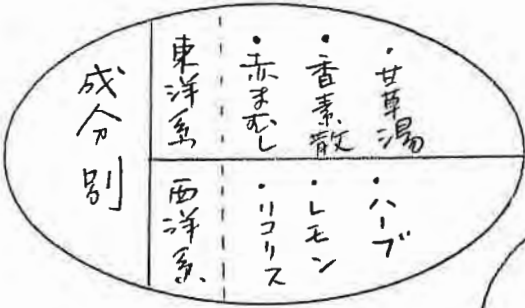 成分別
東洋系
・赤まむし
・香素散
・甘草湯
西洋系
・リコリス
・レモン
・ハーブ